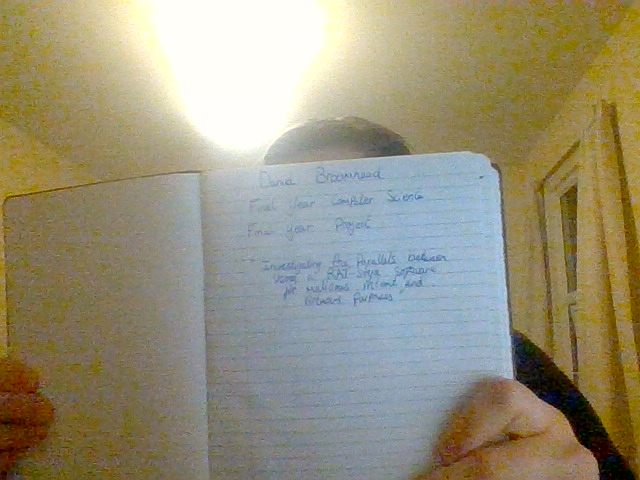 Daniel Broomhead
Final Year Computer Science
Final year Project
"Investigating the Parallels between
using a RAT-Style Software
for Malicious intent and
Software Purposes